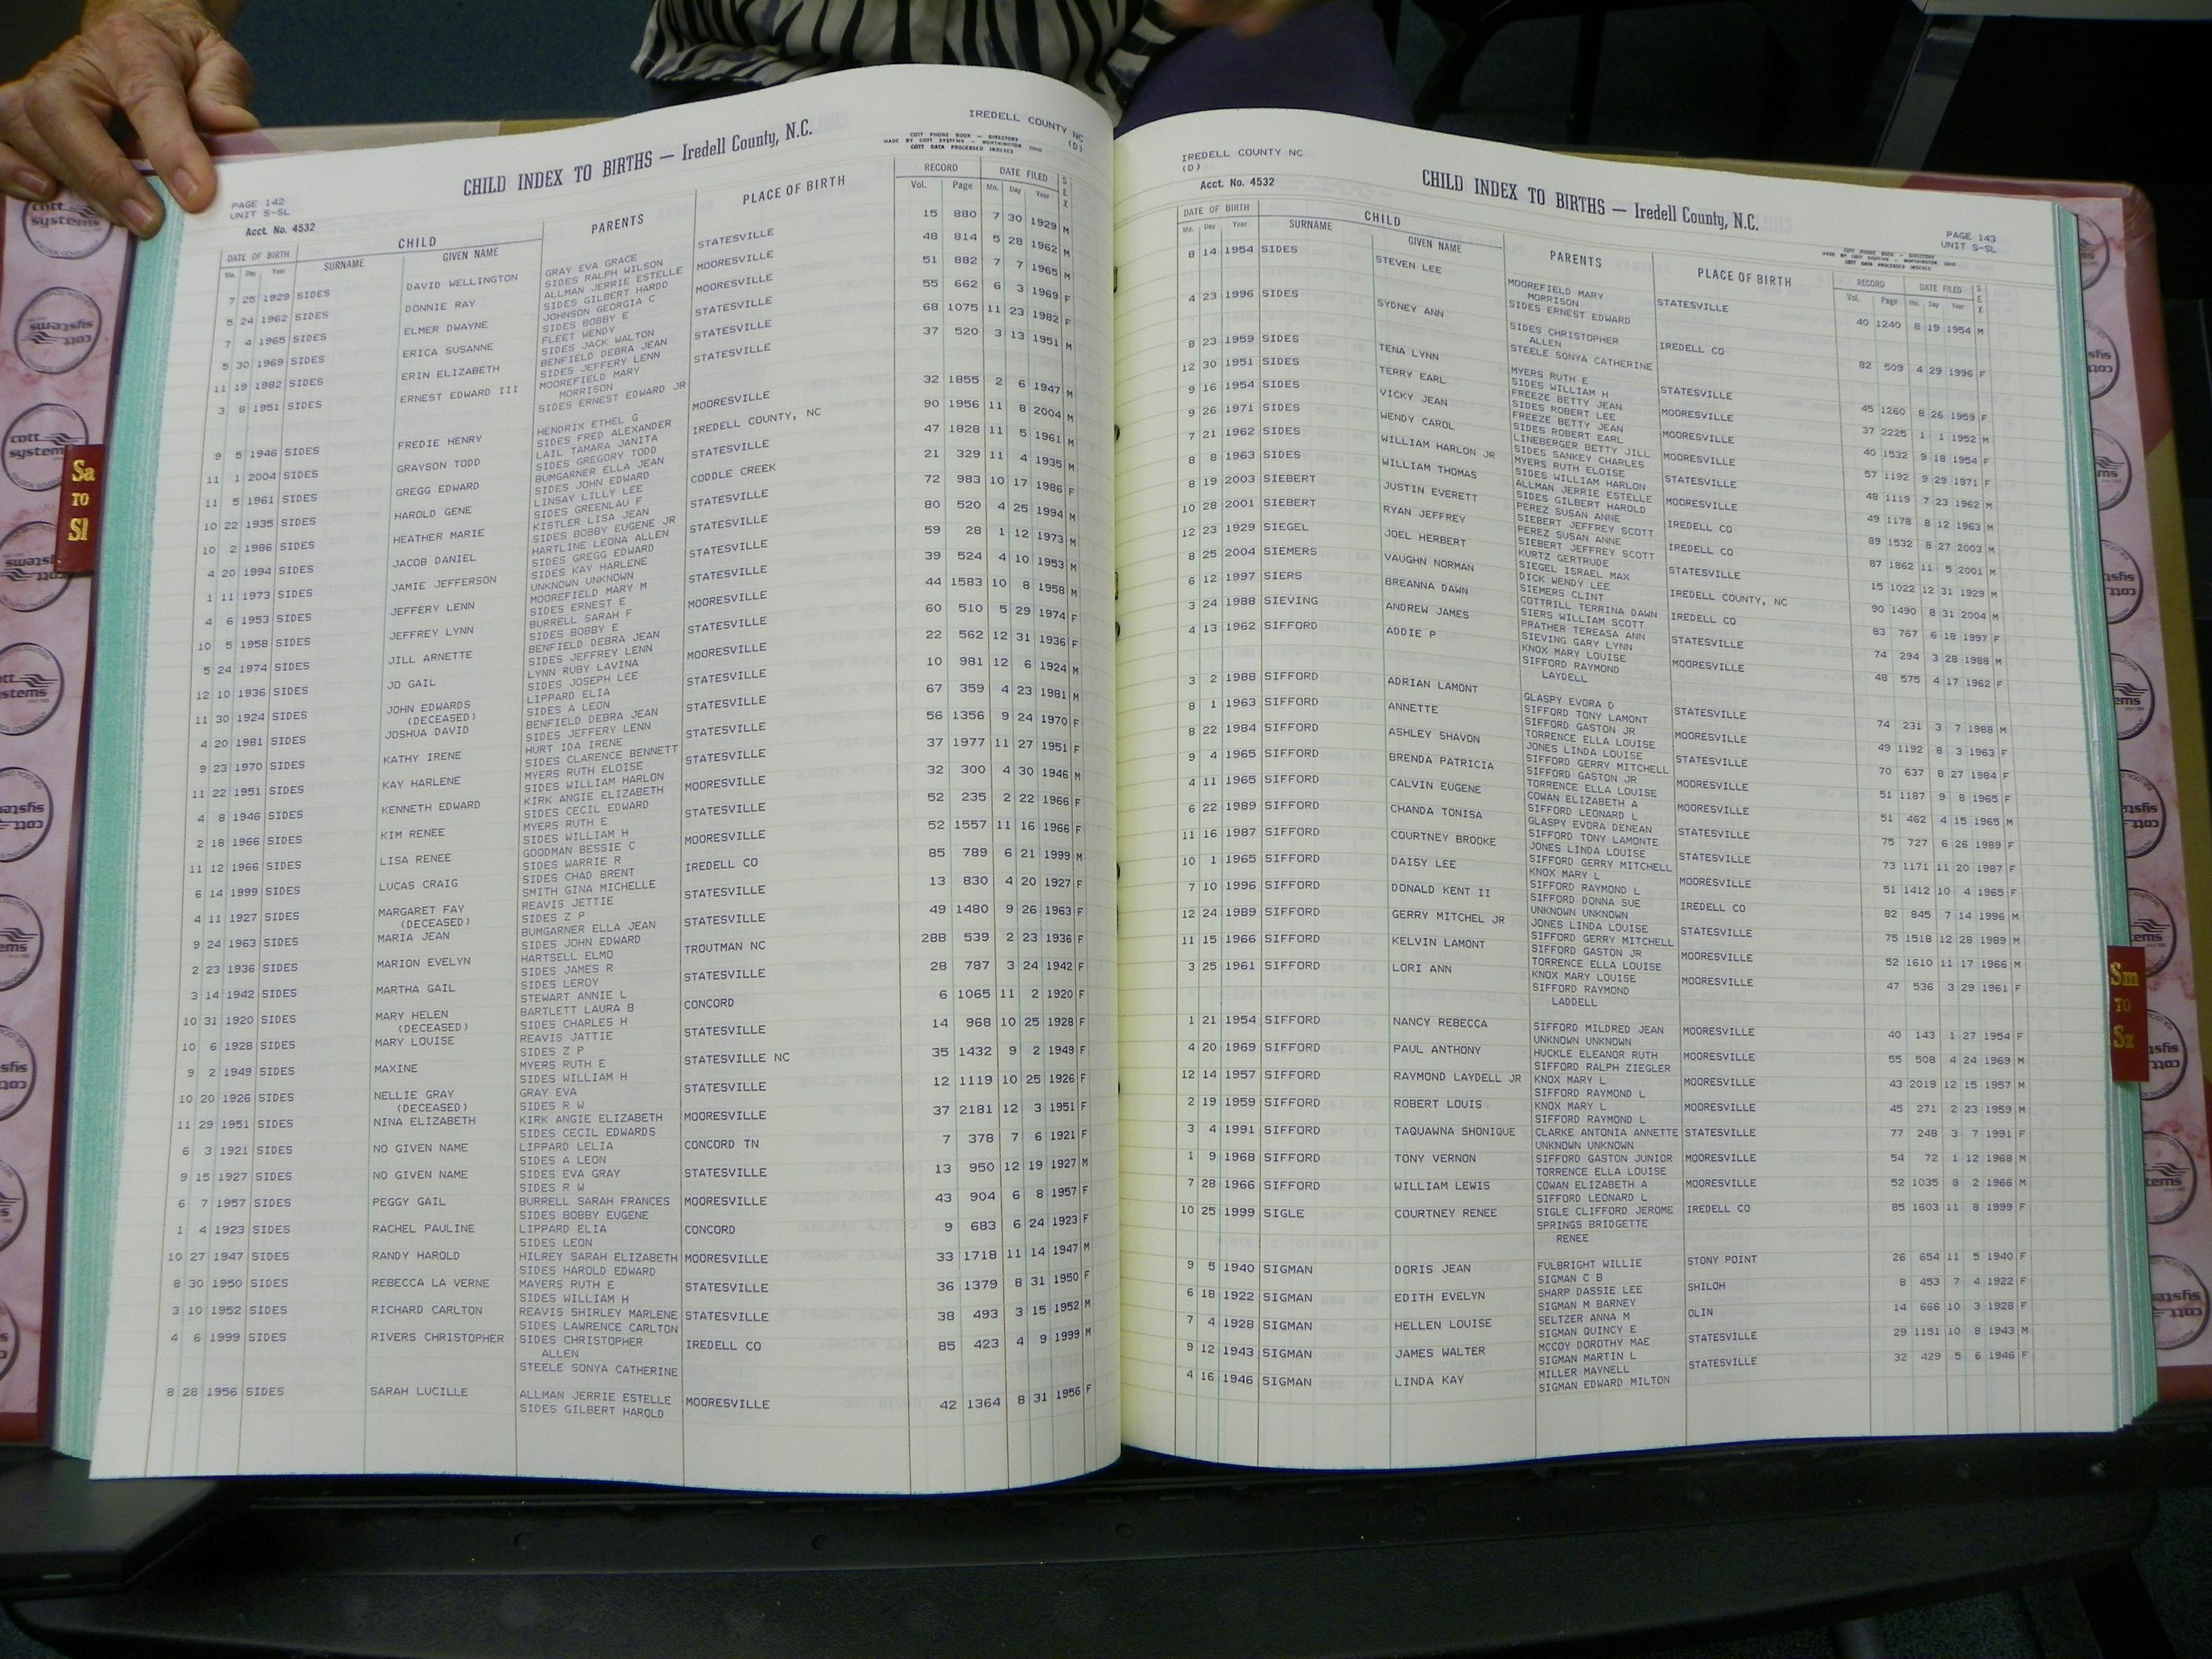 IREDELL COUNTY NC
(D)
CHILD INDEX TO BIRTHS — Iredell County, N.C.
COTT PHONE BOOK — DIRECTORY
MADE BY COTT SYSTEMS — WORTHINGTON OHIO
COTT DATA PROCESSED INDEXES
PAGE 142
UNIT S-SL
Acct. No. 4532
DATE OF BIRTH CHILD PARENTS PLACE OF BIRTH RECORD DATE FILED SEX
Mo. Day Year SURNAME GIVEN NAME Vol. Page Mo. Day Year
7 25 1929 SIDES DAVID WELLINGTON GRAY EVA GRACE STATESVILLE 15 880 7 30 1929 M
SIDES RALPH WILSON
5 24 1962 SIDES DONNIE RAY ALLMAN JERRIE ESTELLE MOORESVILLE 48 814 5 28 1962 M
SIDES GILBERT HARDD
7 4 1965 SIDES ELMER DWAYNE JOHNSON GEORGIA C MOORESVILLE 51 882 7 7 1965 M
SIDES BOBBY E
5 30 1969 SIDES ERICA SUSANNE FLEET WENDY STATESVILLE 55 662 6 3 1969 F
SIDES JACK WALTON
11 19 1982 SIDES ERIN ELIZABETH BENFIELD DEBRA JEAN STATESVILLE 68 1075 11 23 1982 F
SIDES JEFFERY LENN
3 8 1951 SIDES ERNEST EDWARD III MOOREFIELD MARY STATESVILLE 37 520 3 13 1951 M
MORRISON
SIDES ERNEST EDWARD JR
9 5 1946 SIDES FREDIE HENRY HENDRIX ETHEL G MOORESVILLE 32 1855 2 6 1947 M
SIDES FRED ALEXANDER
11 1 2004 SIDES GRAYSON TODD LAIL TAMARA JANITA IREDELL COUNTY, NC 90 1956 11 8 2004 M
SIDES GREGORY TODD
11 5 1961 SIDES GREGG EDWARD BUMGARNER ELLA JEAN STATESVILLE 47 1828 11 5 1961 M
SIDES JOHN EDWARD
10 22 1935 SIDES HAROLD GENE LINSAY LILLY LEE CODDLE CREEK 21 329 11 4 1935 M
SIDES GREENLAU F
10 2 1986 SIDES HEATHER MARIE KISTLER LISA JEAN STATESVILLE 72 983 10 17 1986 F
SIDES BOBBY EUGENE JR
4 20 1994 SIDES JACOB DANIEL HARTLINE LEONA ALLEN STATESVILLE 80 520 4 25 1994 M
SIDES GREGG EDWARD
1 11 1973 SIDES JAMIE JEFFERSON SIDES KAY HARLENE STATESVILLE 59 28 1 12 1973 M
UNKNOWN UNKNOWN
4 6 1953 SIDES JEFFERY LENN MOOREFIELD MARY M STATESVILLE 39 524 4 10 1953 M
SIDES ERNEST E
10 5 1958 SIDES JEFFREY LYNN BURRELL SARAH F MOORESVILLE 44 1583 10 8 1958 M
SIDES BOBBY E
5 24 1974 SIDES JILL ARNETTE BENFIELD DEBRA JEAN STATESVILLE 60 510 5 29 1974 F
SIDES JEFFREY LENN
12 10 1936 SIDES JO GAIL LYNN RUBY LAVINA MOORESVILLE 22 562 12 31 1936 F
SIDES JOSEPH LEE
11 30 1924 SIDES JOHN EDWARDS LIPPARD ELIA STATESVILLE 10 981 12 6 1924 M
(DECEASED) SIDES A LEON
4 20 1981 SIDES JOSHUA DAVID BENFIELD DEBRA JEAN STATESVILLE 67 359 4 23 1981 M
SIDES JEFFERY LENN
9 23 1970 SIDES KATHY IRENE HURT IDA IRENE STATESVILLE 56 1356 9 24 1970 F
SIDES CLARENCE BENNETT
11 22 1951 SIDES KAY HARLENE MYERS RUTH ELOISE STATESVILLE 37 1977 11 27 1951 F
SIDES WILLIAM HARLON
4 8 1946 SIDES KENNETH EDWARD KIRK ANGIE ELIZABETH MOORESVILLE 32 300 4 30 1946 M
SIDES CECIL EDWARD
2 18 1966 SIDES KIM RENEE MYERS RUTH E STATESVILLE 52 235 2 22 1966 F
SIDES WILLIAM H
11 12 1966 SIDES LISA RENEE GOODMAN BESSIE C MOORESVILLE 52 1557 11 16 1966 F
SIDES WARRIE R
6 14 1999 SIDES LUCAS CRAIG SIDES CHAD BRENT IREDELL CO 85 789 6 21 1999 M
SMITH GINA MICHELLE
4 11 1927 SIDES MARGARET FAY REAVIS JETTIE STATESVILLE 13 830 4 20 1927 F
(DECEASED) SIDES Z P
9 24 1963 SIDES MARIA JEAN BUMGARNER ELLA JEAN STATESVILLE 49 1480 9 26 1963 F
SIDES JOHN EDWARD
2 23 1936 SIDES MARION EVELYN HARTSELL ELMO TROUTMAN NC 28B 539 2 23 1936 F
SIDES JAMES R
3 14 1942 SIDES MARTHA GAIL SIDES LEROY STATESVILLE 28 787 3 24 1942 F
STEWART ANNIE L
10 31 1920 SIDES MARY HELEN BARTLETT LAURA B CONCORD 6 1065 11 2 1920 F
(DECEASED) SIDES CHARLES H
10 6 1928 SIDES MARY LOUISE REAVIS JATTIE STATESVILLE 14 968 10 25 1928 F
SIDES Z P
9 2 1949 SIDES MAXINE MYERS RUTH E STATESVILLE NC 35 1432 9 2 1949 F
SIDES WILLIAM H
10 20 1926 SIDES NELLIE GRAY GRAY EVA STATESVILLE 12 1119 10 25 1926 F
(DECEASED) SIDES R W
11 29 1951 SIDES NINA ELIZABETH KIRK ANGIE ELIZABETH MOORESVILLE 37 2181 12 3 1951 F
SIDES CECIL EDWARDS
6 3 1921 SIDES NO GIVEN NAME LIPPARD LELIA CONCORD TN 7 378 7 6 1921 F
SIDES A LEON
9 15 1927 SIDES NO GIVEN NAME SIDES EVA GRAY STATESVILLE 13 950 12 19 1927 M
SIDES R W
6 7 1957 SIDES PEGGY GAIL BURRELL SARAH FRANCES MOORESVILLE 43 904 6 8 1957 F
SIDES BOBBY EUGENE
1 4 1923 SIDES RACHEL PAULINE LIPPARD ELIA CONCORD 9 683 6 24 1923 F
SIDES LEON
10 27 1947 SIDES RANDY HAROLD HILREY SARAH ELIZABETH MOORESVILLE 33 1718 11 14 1947 M
SIDES HAROLD EDWARD
8 30 1950 SIDES REBECCA LA VERNE MAYERS RUTH E STATESVILLE 36 1379 8 31 1950 F
SIDES WILLIAM H
3 10 1952 SIDES RICHARD CARLTON REAVIS SHIRLEY MARLENE STATESVILLE 38 493 3 15 1952 M
SIDES LAWRENCE CARLTON
4 6 1999 SIDES RIVERS CHRISTOPHER SIDES CHRISTOPHER IREDELL CO 85 423 4 9 1999 M
ALLEN
STEELE SONYA CATHERINE
8 28 1956 SIDES SARAH LUCILLE ALLMAN JERRIE ESTELLE MOORESVILLE 42 1364 8 31 1956 F
SIDES GILBERT HAROLD
IREDELL COUNTY NC
(D)
Acct. No. 4532
CHILD INDEX TO BIRTHS — Iredell County, N.C.
PAGE 143
UNIT S-SL
COTT PHONE BOOK — DIRECTORY
MADE BY COTT SYSTEMS — WORTHINGTON OHIO
COTT DATA PROCESSED INDEXES
DATE OF BIRTH CHILD PARENTS PLACE OF BIRTH RECORD DATE FILED SEX
Mo. Day Year SURNAME GIVEN NAME Vol. Page Mo. Day Year
8 14 1954 SIDES STEVEN LEE MOOREFIELD MARY STATESVILLE 40 1240 8 19 1954 M
MORRISON
SIDES ERNEST EDWARD
4 23 1996 SIDES SYDNEY ANN SIDES CHRISTOPHER IREDELL CO 82 509 4 29 1996 F
ALLEN
STEELE SONYA CATHERINE
8 23 1959 SIDES TENA LYNN MYERS RUTH E STATESVILLE 45 1260 8 26 1959 F
SIDES WILLIAM H
12 30 1951 SIDES TERRY EARL FREEZE BETTY JEAN MOORESVILLE 37 2225 1 1 1952 M
SIDES ROBERT LEE
9 16 1954 SIDES VICKY JEAN FREEZE BETTY JEAN MOORESVILLE 40 1532 9 18 1954 F
SIDES ROBERT EARL
9 26 1971 SIDES WENDY CAROL LINEBERGER BETTY JILL MOORESVILLE 57 1192 9 29 1971 F
SIDES SANKEY CHARLES
7 21 1962 SIDES WILLIAM HARLON JR MYERS RUTH ELOISE STATESVILLE 48 1119 7 23 1962 M
SIDES WILLIAM HARLON
8 8 1963 SIDES WILLIAM THOMAS ALLMAN JERRIE ESTELLE MOORESVILLE 49 1178 8 12 1963 M
SIDES GILBERT HAROLD
8 19 2003 SIEBERT JUSTIN EVERETT PEREZ SUSAN ANNE IREDELL CO 89 1532 8 27 2003 M
SIEBERT JEFFREY SCOTT
10 28 2001 SIEBERT RYAN JEFFREY PEREZ SUSAN ANNE IREDELL CO 87 1862 11 5 2001 M
SIEBERT JEFFREY SCOTT
12 23 1929 SIEGEL JOEL HERBERT KURTZ GERTRUDE STATESVILLE 15 1022 12 31 1929 M
SIEGEL ISRAEL MAX
8 25 2004 SIEMERS VAUGHN NORMAN DICK WENDY LEE IREDELL COUNTY, NC 90 1490 8 31 2004 M
SIEMERS CLINT
6 12 1997 SIERS BREANNA DAWN COTTRILL TERRINA DAWN IREDELL CO 83 767 6 18 1997 F
SIERS WILLIAM SCOTT
3 24 1988 SIEVING ANDREW JAMES PRATHER TEREASA ANN STATESVILLE 74 294 3 28 1988 M
SIEVING GARY LYNN
4 13 1962 SIFFORD ADDIE P KNOX MARY LOUISE MOORESVILLE 48 575 4 17 1962 F
SIFFORD RAYMOND
LAYDELL
3 2 1988 SIFFORD ADRIAN LAMONT GLASPY EVORA D STATESVILLE 74 231 3 7 1988 M
SIFFORD TONY LAMONT
8 1 1963 SIFFORD ANNETTE SIFFORD GASTON JR MOORESVILLE 49 1192 8 3 1963 F
TORRENCE ELLA LOUISE
8 22 1984 SIFFORD ASHLEY SHAVON JONES LINDA LOUISE STATESVILLE 70 637 8 27 1984 F
SIFFORD GERRY MITCHELL
9 4 1965 SIFFORD BRENDA PATRICIA SIFFORD GASTON JR MOORESVILLE 51 1187 9 8 1965 F
TORRENCE ELLA LOUISE
4 11 1965 SIFFORD CALVIN EUGENE COWAN ELIZABETH A MOORESVILLE 51 462 4 15 1965 M
SIFFORD LEONARD L
6 22 1989 SIFFORD CHANDA TONISA GLASPY EVORA DENEAN STATESVILLE 75 727 6 26 1989 F
SIFFORD TONY LAMONTE
11 16 1987 SIFFORD COURTNEY BROOKE JONES LINDA LOUISE STATESVILLE 73 1171 11 20 1987 F
SIFFORD GERRY MITCHELL
10 1 1965 SIFFORD DAISY LEE KNOX MARY L MOORESVILLE 51 1412 10 4 1965 F
SIFFORD RAYMOND L
7 10 1996 SIFFORD DONALD KENT II SIFFORD DONNA SUE IREDELL CO 82 845 7 14 1996 M
UNKNOWN UNKNOWN
12 24 1989 SIFFORD GERRY MITCHEL JR JONES LINDA LOUISE STATESVILLE 75 1518 12 28 1989 M
SIFFORD GERRY MITCHELL
11 15 1966 SIFFORD KELVIN LAMONT SIFFORD GASTON JR MOORESVILLE 52 1610 11 17 1966 M
TORRENCE ELLA LOUISE
3 25 1961 SIFFORD LORI ANN KNOX MARY LOUISE MOORESVILLE 47 536 3 29 1961 F
SIFFORD RAYMOND
LADDELL
1 21 1954 SIFFORD NANCY REBECCA SIFFORD MILDRED JEAN MOORESVILLE 40 143 1 27 1954 F
UNKNOWN UNKNOWN
4 20 1969 SIFFORD PAUL ANTHONY HUCKLE ELEANOR RUTH MOORESVILLE 55 508 4 24 1969 M
SIFFORD RALPH ZIEGLER
12 14 1957 SIFFORD RAYMOND LAYDELL JR KNOX MARY L MOORESVILLE 43 2019 12 15 1957 M
SIFFORD RAYMOND L
2 19 1959 SIFFORD ROBERT LOUIS KNOX MARY L MOORESVILLE 45 271 2 23 1959 M
SIFFORD RAYMOND L
3 4 1991 SIFFORD TAQUAWNA SHONIQUE CLARKE ANTONIA ANNETTE STATESVILLE 77 248 3 7 1991 F
UNKNOWN UNKNOWN
1 9 1968 SIFFORD TONY VERNON SIFFORD GASTON JUNIOR MOORESVILLE 54 72 1 12 1968 M
TORRENCE ELLA LOUISE
7 28 1966 SIFFORD WILLIAM LEWIS COWAN ELIZABETH A MOORESVILLE 52 1035 8 2 1966 M
SIFFORD LEONARD L
10 25 1999 SIGLE COURTNEY RENEE SIGLE CLIFFORD JEROME IREDELL CO 85 1603 11 8 1999 F
SPRINGS BRIDGETTE
RENEE
9 5 1940 SIGMAN DORIS JEAN FULBRIGHT WILLIE STONY POINT 26 654 11 5 1940 F
SIGMAN C B
6 18 1922 SIGMAN EDITH EVELYN SHARP DASSIE LEE SHILOH 8 453 7 4 1922 F
SIGMAN M BARNEY
7 4 1928 SIGMAN HELLEN LOUISE SELTZER ANNA M OLIN 14 666 10 3 1928 F
SIGMAN QUINCY E
9 12 1943 SIGMAN JAMES WALTER MCCOY DOROTHY MAE STATESVILLE 29 1151 10 8 1943 M
SIGMAN MARTIN L
4 16 1946 SIGMAN LINDA KAY MILLER MAYNELL STATESVILLE 32 429 5 6 1946 F
SIGMAN EDWARD MILTON
Sa
TO
Sl
Sm
TO
Sz
cott
systems